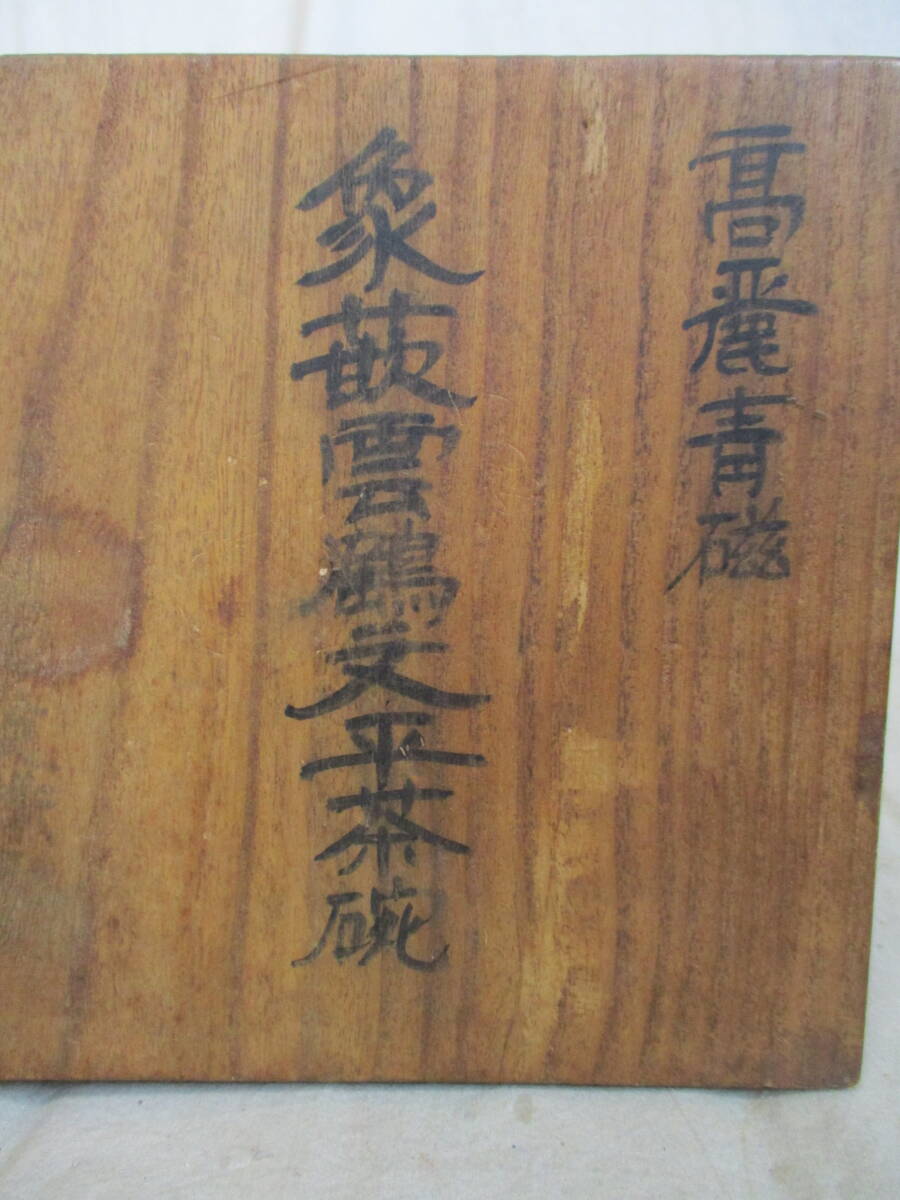 高麗青磁
象嵌雲鶴文平茶碗